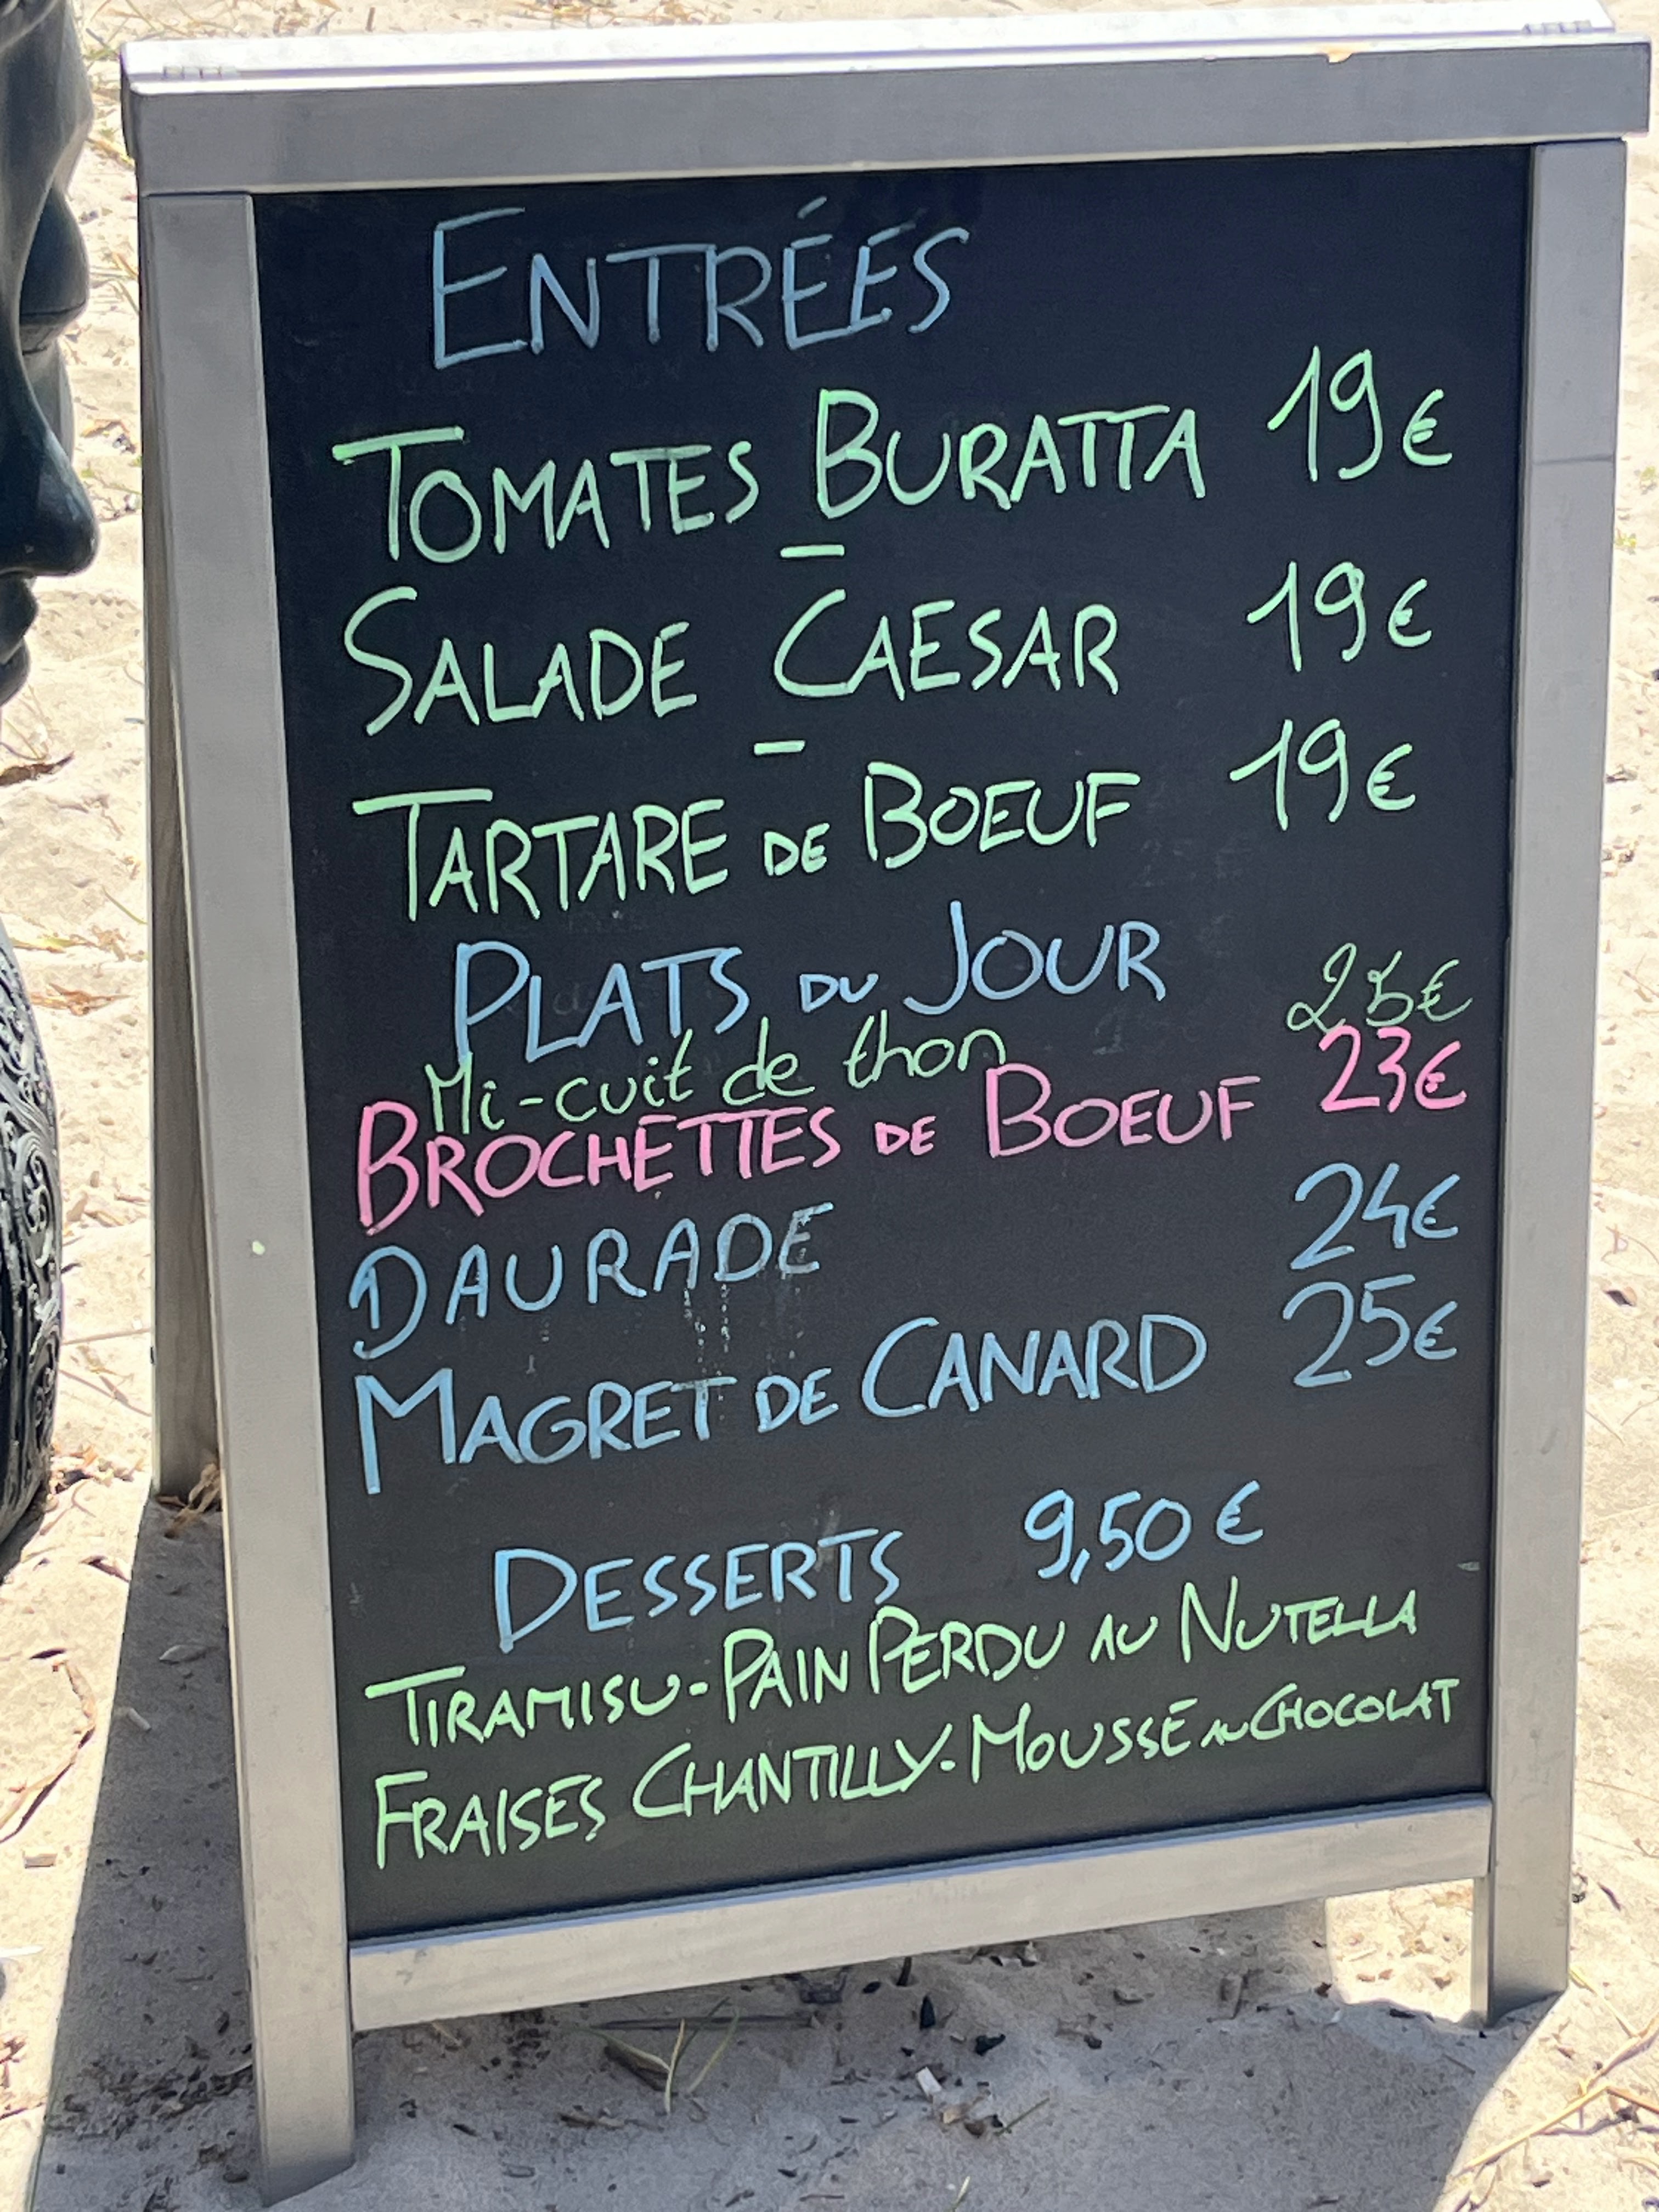 ENTRÉES
TOMATES BURATTA 19€
–
SALADE CAESAR 19€
–
TARTARE DE BOEUF 19€
PLATS DU JOUR
Mi-cuit de thon 25€
BROCHETTES DE BOEUF 23€
DAURADE 24€
MAGRET DE CANARD 25€
DESSERTS 9,50 €
TIRAMISU-PAIN PERDU AU NUTELLA
FRAISES CHANTILLY-MOUSSE AU CHOCOLAT